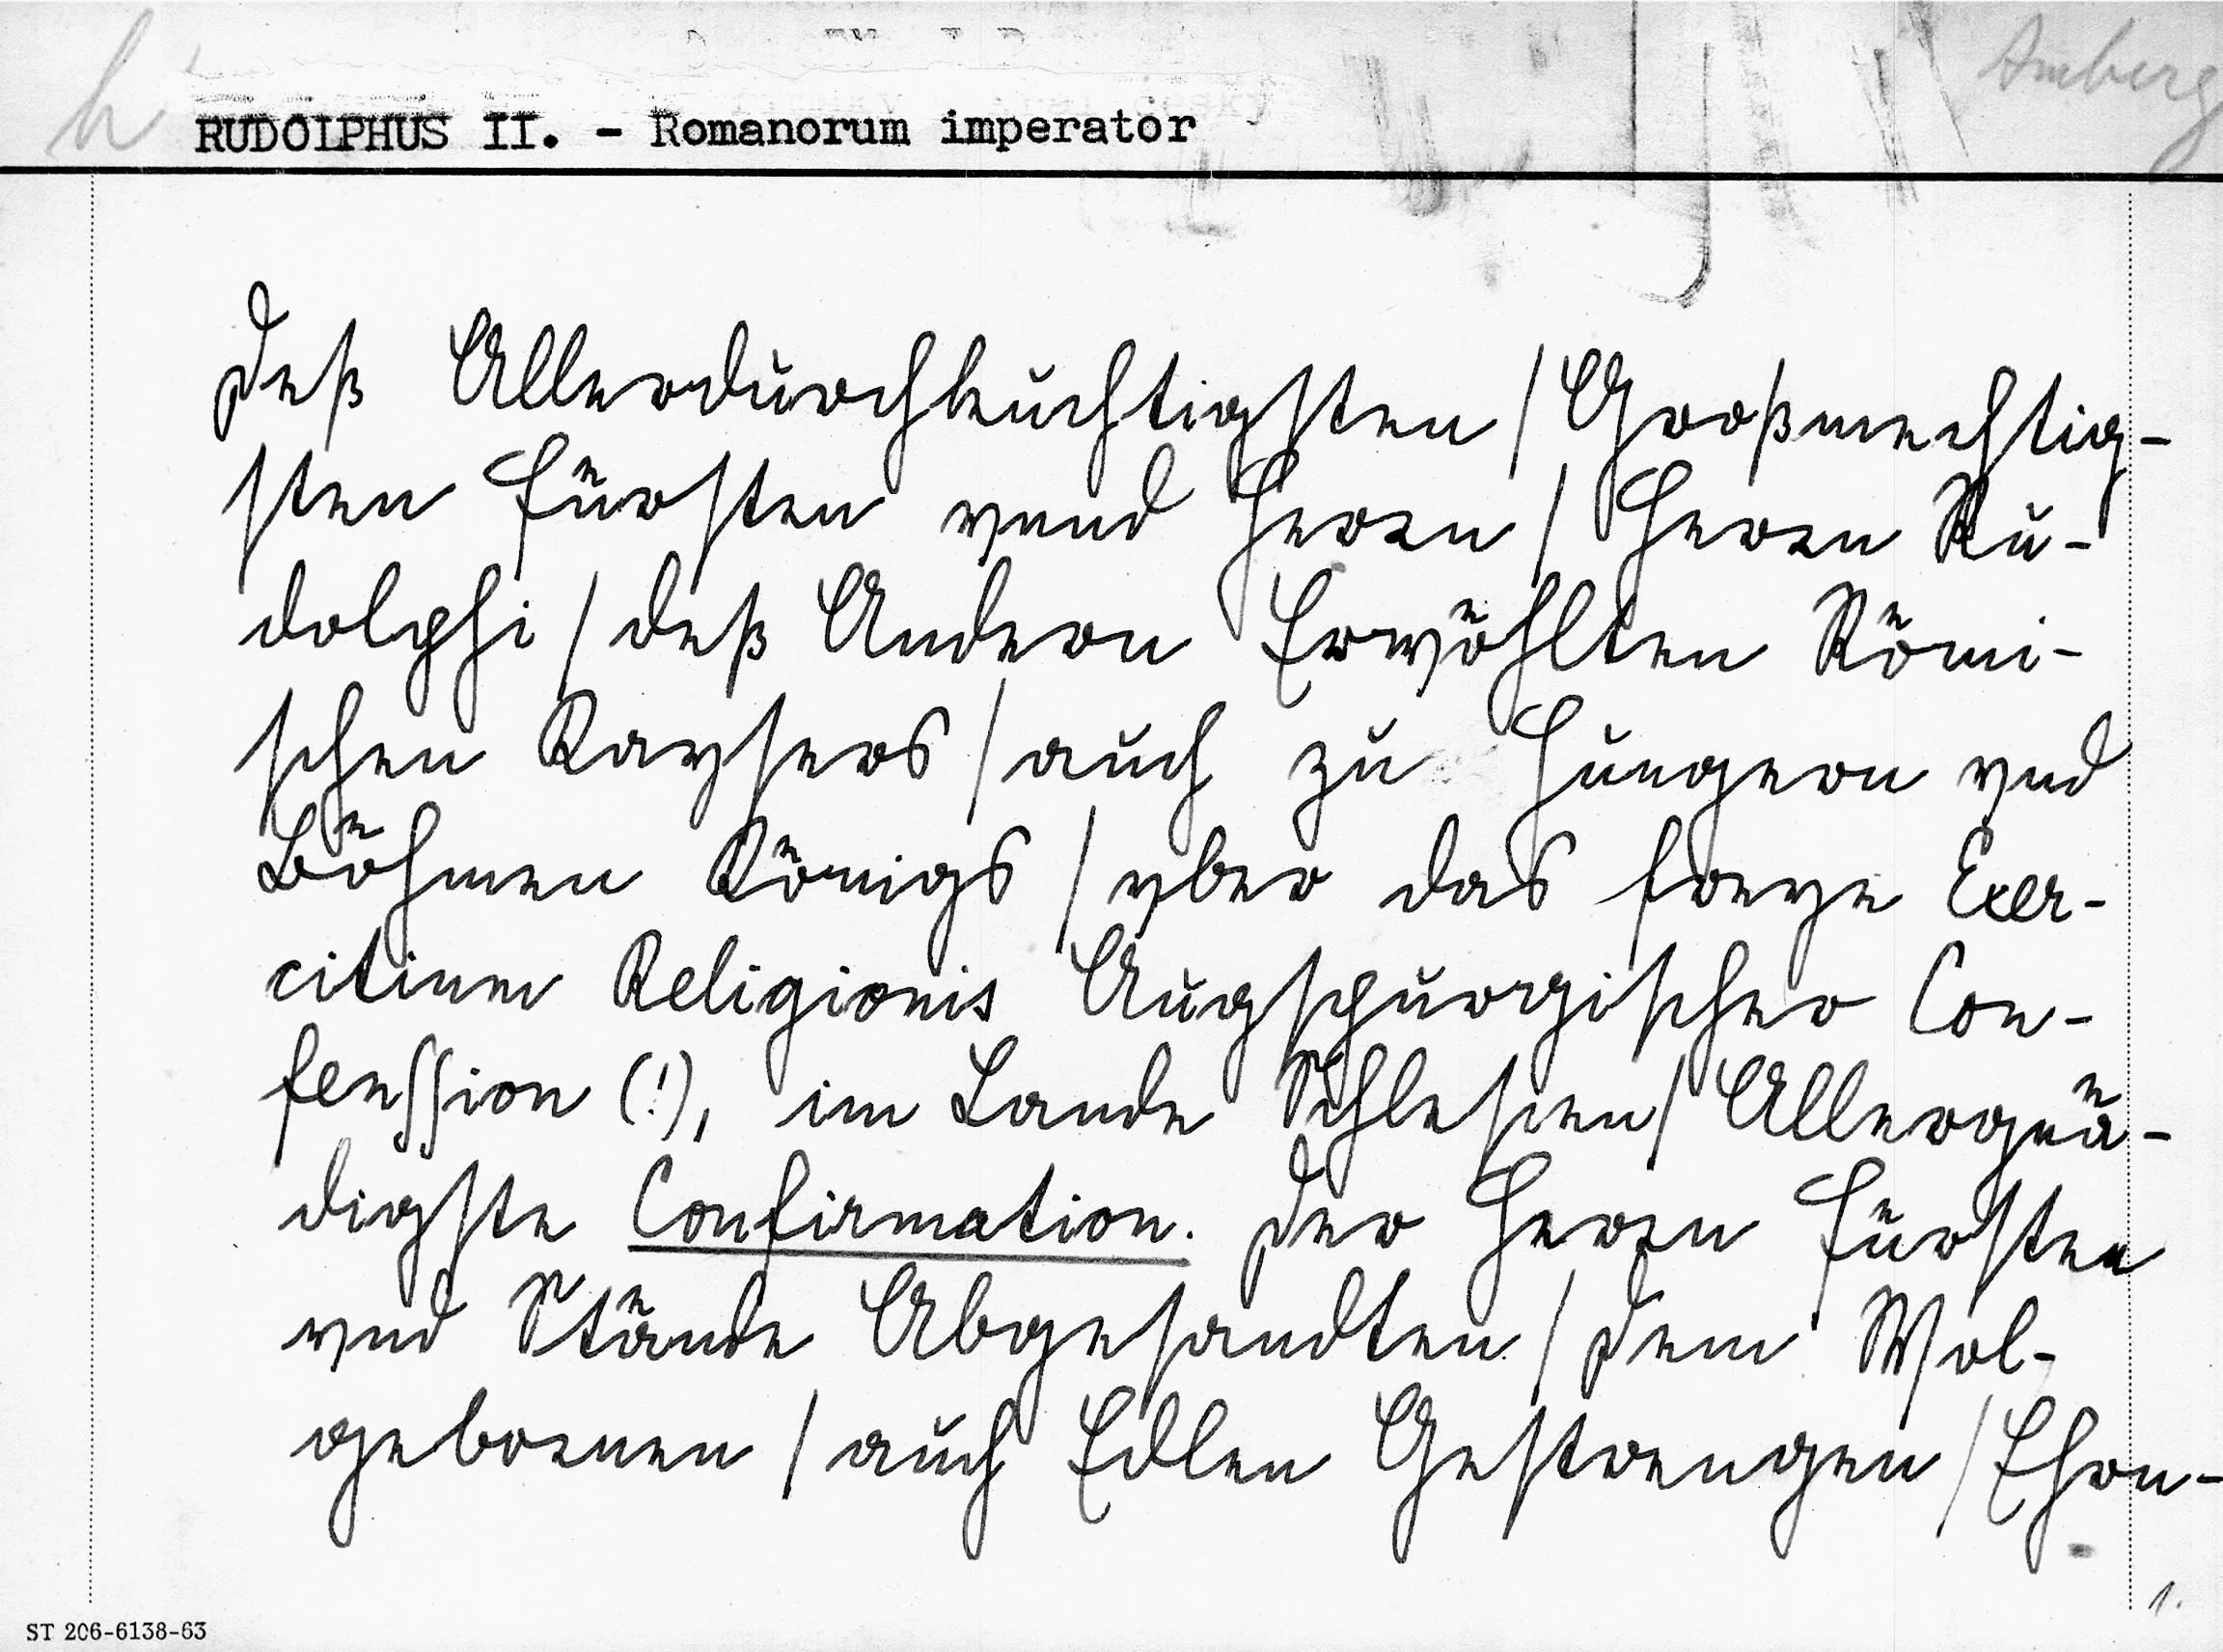 h
Amberg
RUDOLPHUS II. - Romanorum imperator
Deß Allerdurchleuchtigsten / Großmechtig-
sten Fuͤrsten vnnd Herrn / Herrn Ru-
dolphi / deß Andern Erwoͤhlten Roͤmi-
schen Kaysers / auch zu Hungern vnd
Boͤhmen Koͤnigs / vber das freye Exer-
citium Religionis Augspurgischer Con-
fenssion (!), im Lande Schlesien / Allergnaͤ-
digste Confirmation. Der Herrn Fuͤrsten
vnd Staͤnde Abgesandten / Dem Wol-
gebornen / auch Edlen Gestrengen / Ehrn-
1.
ST 206-6138-63